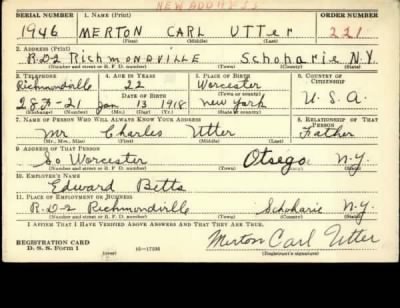 NEW ADDRESS
SERIAL NUMBER 1. NAME (Print) ORDER NUMBER
1946 MERTON CARL UTTer 221
(First) (Middle) (Last)
2. ADDRESS (Print)
R.D2 RichMONDVILLE Schoharie N.Y.
(Number and street or R. F. D. number) (Town) (County) (State)
3. TELEPHONE 4. AGE IN YEARS 5. PLACE OF BIRTH 6. COUNTRY OF CITIZENSHIP
Richmondville 22 Worcester
DATE OF BIRTH (Town or county)
28F-21 Jan 13 1918 New York U.S.A.
(Exchange) (Number) (Mo.) (Day) (Yr.) (State or country)
7. NAME OF PERSON WHO WILL ALWAYS KNOW YOUR ADDRESS 8. RELATIONSHIP OF THAT PERSON
Mr Charles Utter Father
(Mr., Mrs., Miss) (First) (Middle) (Last)
9. ADDRESS OF THAT PERSON
So Worcester Otsego N.Y.
(Number and street or R. F. D. number) (Town) (County) (State)
10. EMPLOYER'S NAME
Edward Betts
11. PLACE OF EMPLOYMENT OR BUSINESS
R.D-2 Richmondville Schoharie N.Y.
(Number and street or R. F. D. number) (Town) (County) (State)
I AFFIRM THAT I HAVE VERIFIED ABOVE ANSWERS AND THAT THEY ARE TRUE.
Merton Carl Utter
REGISTRATION CARD
D. S. S. Form 1 16-17105 (Registrant's signature)